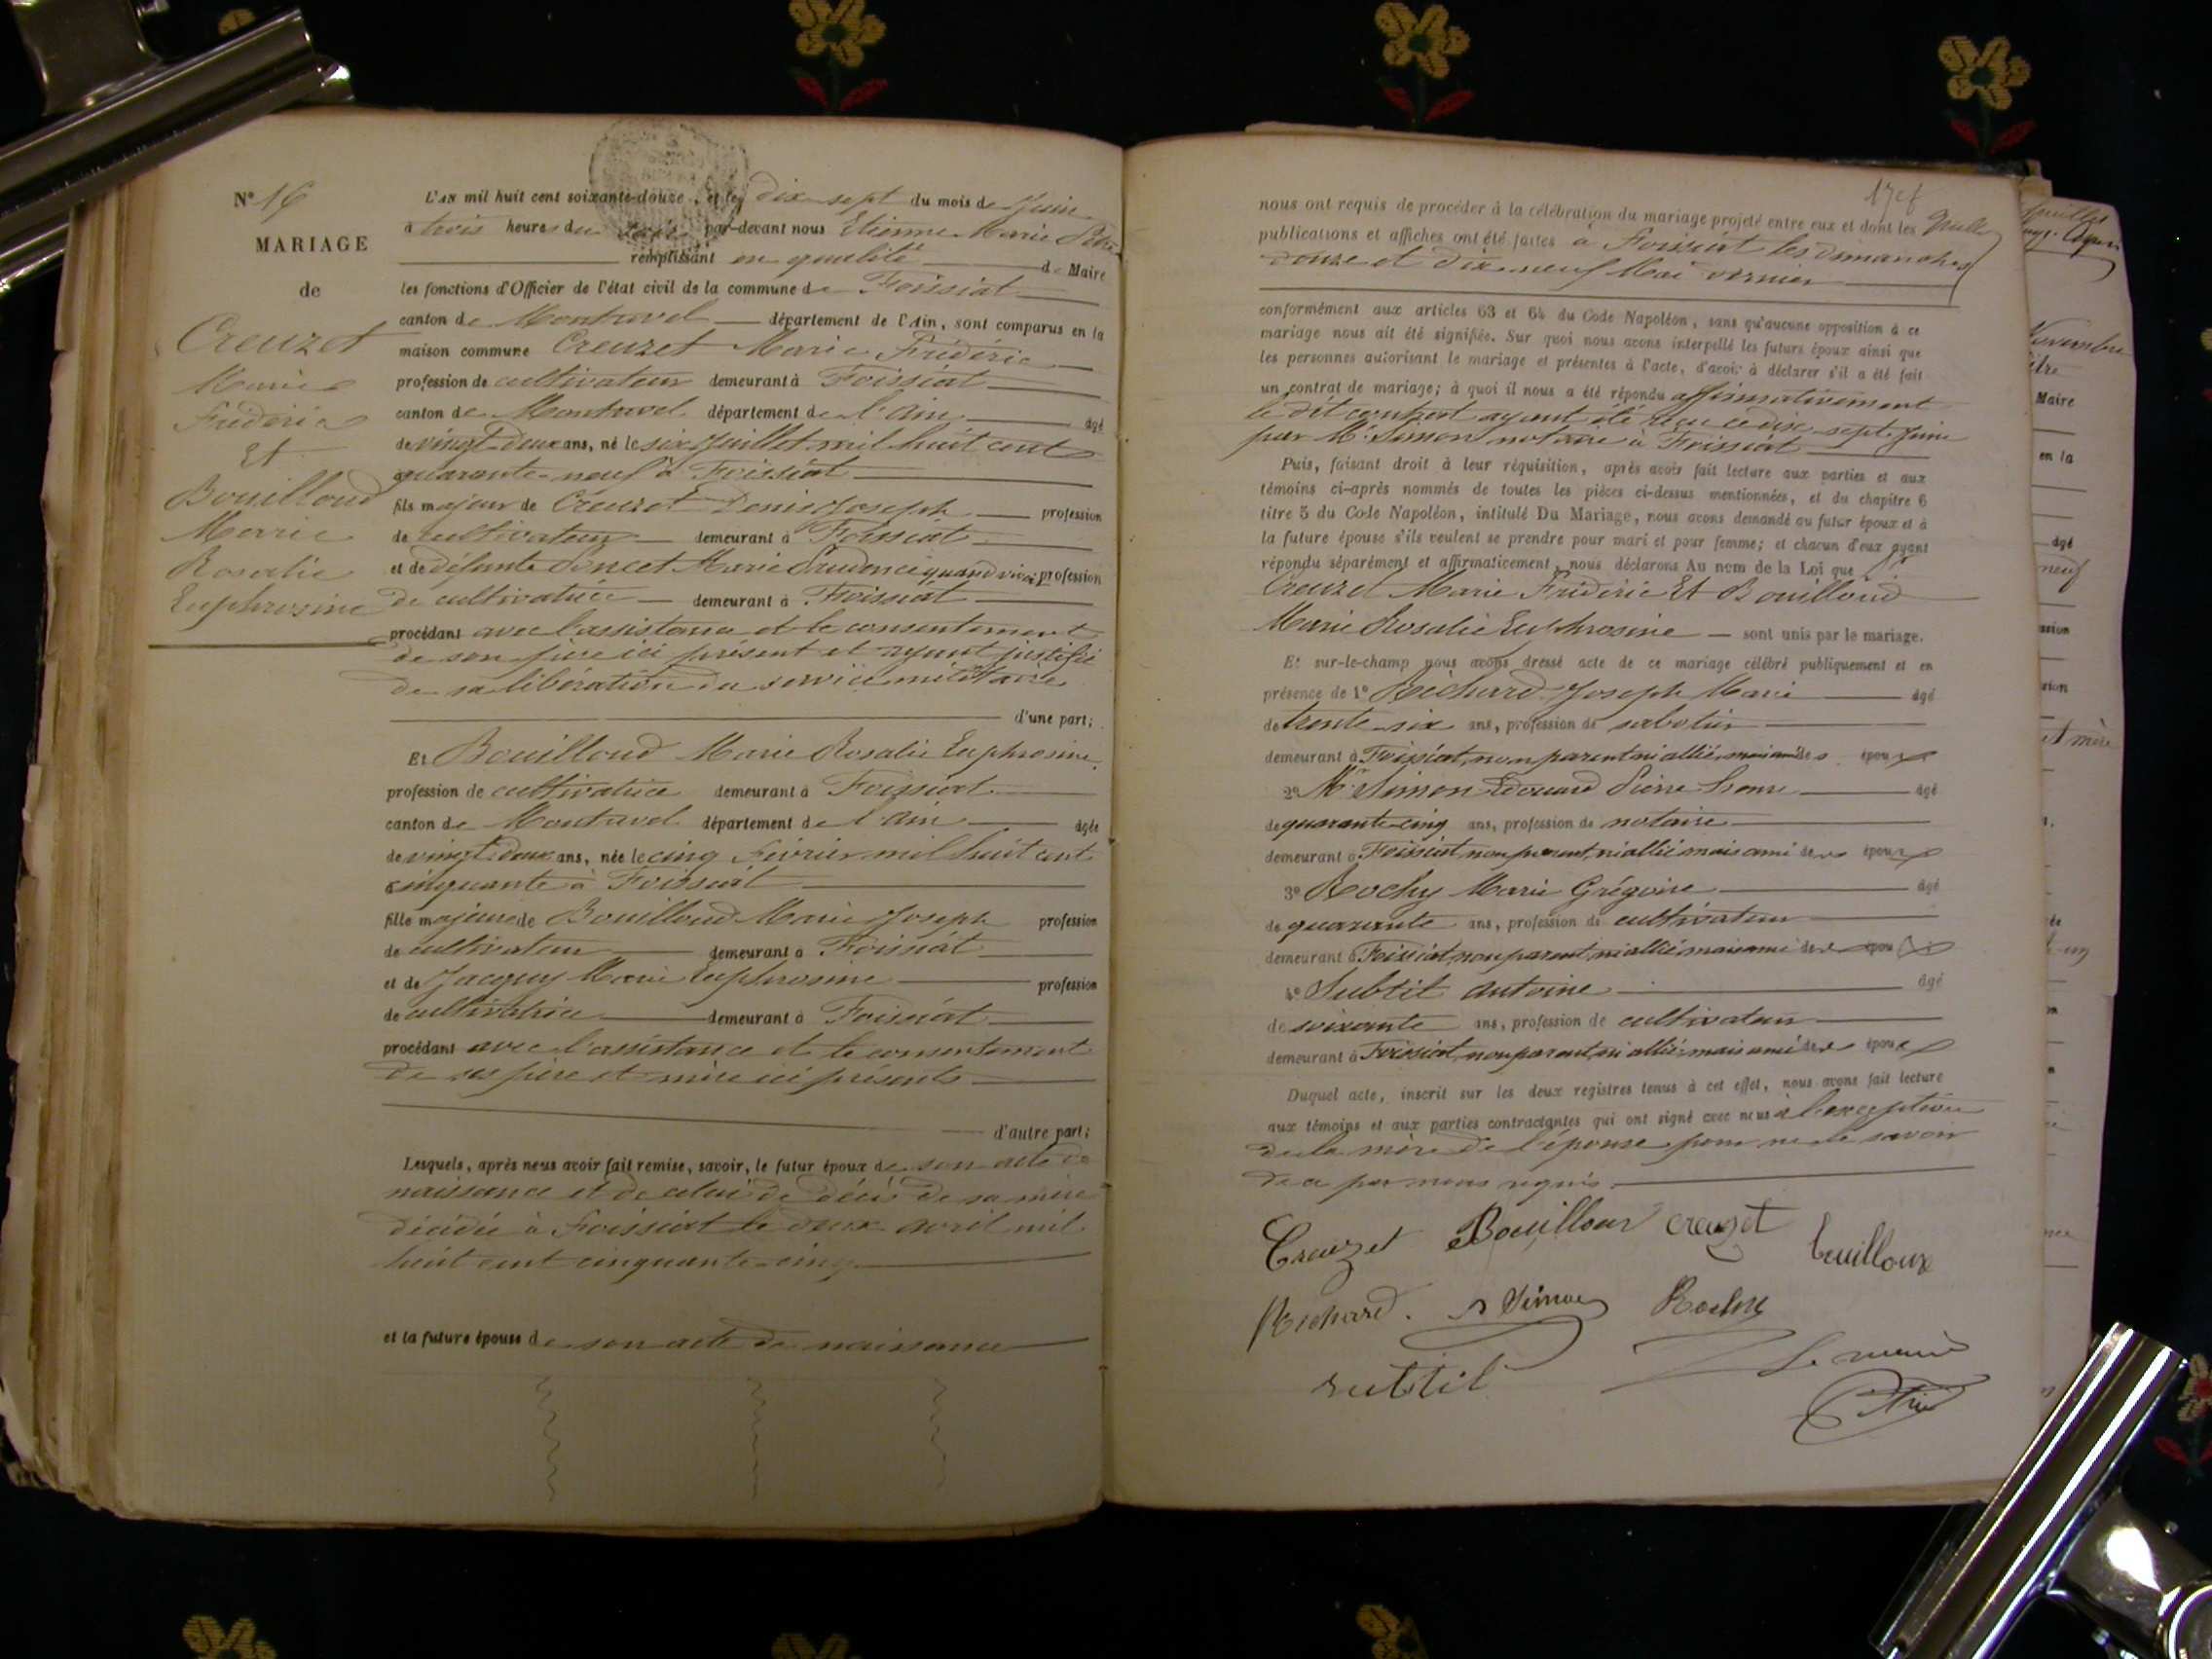 N° 16
MARIAGE
de
Creuzet
Marie
Frédéric
Et
Bouilloud
Marie
Rosalie
Euphrosine
L'AN mil huit cent soixante-douze, et le dix sept du mois de Juin
à trois heures du par-devant nous Etienne Marie
remplissant en qualité de Maire
les fonctions d'Officier de l'état civil de la commune de Foissiat
canton de Montrevel département de l'Ain, sont comparus en la
maison commune Creuzet Marie Frédéric
profession de cultivateur demeurant à Foissiat
canton de Montrevel département de l'Ain âgé
de vingt deux ans, né le six Juillet mil huit cent
quarante-neuf à Foissiat
fils majeur de Creuzet Denis Joseph profession
de cultivateur demeurant à Foissiat
et de défunte Poncet Marie Prudence quand vivait profession
de cultivatrice demeurant à Foissiat
procédant avec l'assistance et le consentement
de son père ici présent et ayant justifié
de sa libération du service militaire
d'une part;
Et Bouilloud Marie Rosalie Euphrosine
profession de cultivatrice demeurant à Foissiat
canton de Montrevel département de l'Ain âgée
de vingt deux ans, née le cinq Février mil huit cent
cinquante à Foissiat
fille majeure de Bouilloud Marie Joseph profession
de cultivateur demeurant à Foissiat
et de Jacquy Marie Euphrosine profession
de cultivatrice demeurant à Foissiat
procédant avec l'assistance et le consentement
de ses père et mère ici présents
d'autre part;
Lesquels, après nous avoir fait remise, savoir, le futur époux de son acte de
naissance et de celui de décès de sa mère
décédée à Foissiat le deux avril mil
huit cent cinquante-cinq
et la future épouse de son acte de naissance
nous ont requis de procéder à la célébration du mariage projeté entre eux et dont les
publications et affiches ont été faites à Foissiat les dimanches
douze et dix-neuf Mai dernier
conformément aux articles 63 et 64 du Code Napoléon, sans qu'aucune opposition à ce
mariage nous ait été signifiée. Sur quoi nous avons interpellé les futurs époux ainsi que
les personnes autorisant le mariage et présentes à l'acte, d'avoir à déclarer s'il a été fait
un contrat de mariage; à quoi il nous a été répondu affirmativement
le dit contrat ayant été reçu ce dix-sept Juin
par Me Simon notaire à Foissiat
Puis, faisant droit à leur réquisition, après avoir fait lecture aux parties et aux
témoins ci-après nommés de toutes les pièces ci-dessus mentionnées, et du chapitre 6
titre 5 du Code Napoléon, intitulé Du Mariage, nous avons demandé au futur époux et à
la future épouse s'ils veulent se prendre pour mari et pour femme; et chacun d'eux ayant
répondu séparément et affirmativement, nous déclarons Au nom de la Loi que
Creuzet Marie Frédéric Et Bouilloud
Marie Rosalie Euphrosine sont unis par le mariage.
Et sur-le-champ nous avons dressé acte de ce mariage célébré publiquement et en
présence de 1° Richard Joseph Marie âgé
de trente-six ans, profession de sabotier
demeurant à Foissiat, non parent ni allié mais ami des époux
2° Me Simon Edouard Pierre âgé
de quarante-cinq ans, profession de notaire
demeurant à Foissiat non parent, ni allié mais ami des époux
3° Rochy Marie Grégoire âgé
de quarante ans, profession de cultivateur
demeurant à Foissiat, non parent, ni allié mais ami des époux
4° Subtil Antoine âgé
de soixante ans, profession de cultivateur
demeurant à Foissiat, non parent, ni allié, mais ami des époux
Duquel acte, inscrit sur les deux registres tenus à cet effet, nous avons fait lecture
aux témoins et aux parties contractantes qui ont signé avec nous à l'exception
de la mère de l'épouse pour ne le savoir
de ce par nous requis.
Creuzet Bouilloux creuzet bouilloux
Richard. Simon Rochy
subtil Le maire
Novembre
Maire
en la
âgé
neuf
et mère